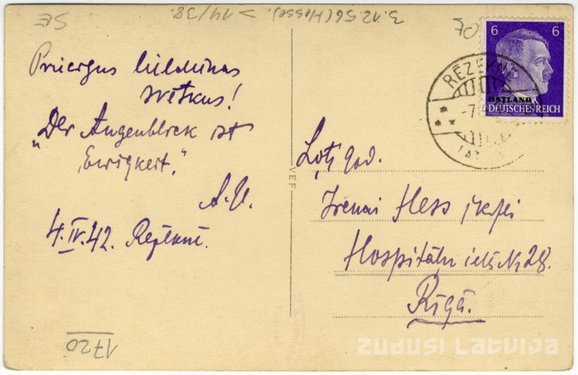 Priecīgus Lieldienas
svētkus!
"Der Augenblick ist
Ewigkeit."
A.U.
4.IV.42. Rēzeknē.
SE
3.12.56 (Hesse). > 14/38.
1720
VEF
6 6
OSTLAND
DEUTSCHES REICH
RĒZEKNE
-7.
Ļ. god.
Irenai Hess jkdzei
Hospitāļu ielā № 28.
Rīgā.
ZUDUSI LATVIJA